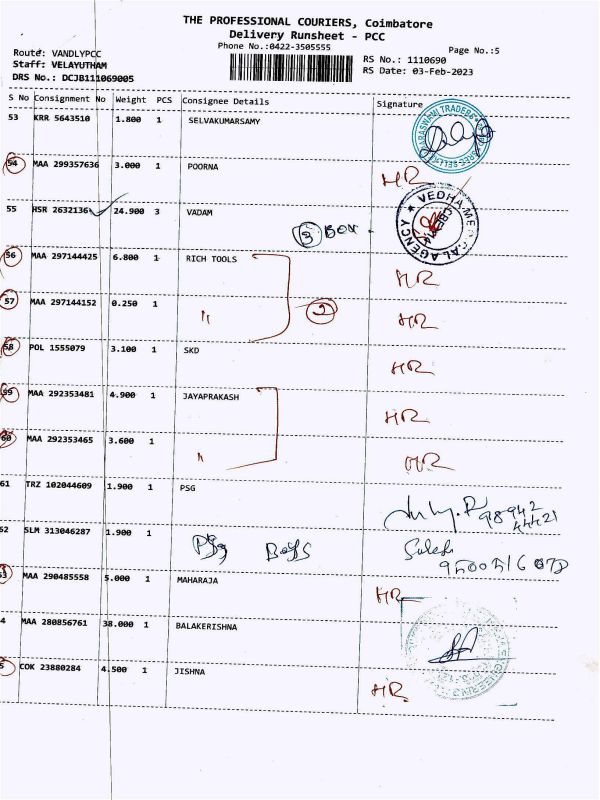 THE PROFESSIONAL COURIERS, Coimbatore
Delivery Runsheet - PCC
Phone No.:0422-3505555
Page No.:5
Route: VANDLYPCC
Staff: VELAYUTHAM
DRS No.: DCJB111069005
RS No.: 1110690
RS Date: 03-Feb-2023
S No Consignment No Weight PCS Consignee Details Signature
53 KRR 5643510 1.800 1 SELVAKUMARSAMY
54 MAA 299357636 3.000 1 POORNA HR
55 HSR 2632136 24.900 3 VADAM
3 BOX
56 MAA 297144425 6.800 1 RICH TOOLS HR
57 MAA 297144152 0.250 1 " 2 HR
58 POL 1555079 3.100 1 SKD HR
59 MAA 292353481 4.900 1 JAYAPRAKASH HR
60 MAA 292353465 3.600 1 " HR
61 TRZ 102044609 1.900 1 PSG
98942
44421
52 SLM 313046287 1.900 1 PSg Boys
53 MAA 290485558 5.000 1 MAHARAJA HR
4 MAA 280856761 38.000 1 BALAKERISHNA
5 COK 23880284 4.500 1 JISHNA HR